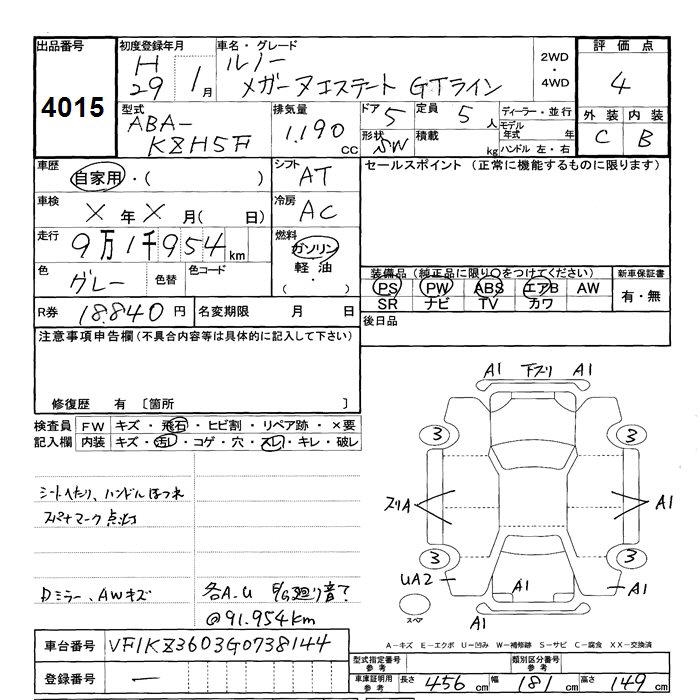 出品番号
4015
初度登録年月
H29年 1月
車名・グレード
ルノー
メガーヌエステート GTライン
2WD
・
4WD
評価点
4
型式
ABA-
KZH5F
排気量
1.190 CC
ドア 5
定員 5 人
形状 SW
積載 kg
ディーラー・並行
モデル年式 年
ハンドル 左・右
外装 内装
C B
車歴
自家用・( )
シフト
AT
セールスポイント (正常に機能するものに限ります)
車検
X年X月( 日)
冷房
AC
走行
9万1千954km
燃料
ガソリン
軽油
( ・ )
色
グレー
色替
色コード
装備品(純正品に限り○をつけてください)
PS PW ABS エアB AW
SR ナビ TV カワ
新車保証書
有・無
R券 18.840円
名変期限 月 日
後日品
注意事項申告欄(不具合内容等は具体的に記入して下さい)
修復歴 有 〔箇所 〕
検査員 FW キズ・飛石・ヒビ割・リペア跡・×要
記入欄 内装 キズ・汚レ・コゲ・穴・スレ・キレ・破レ
シートへたり、ハンドルほつれ
スパナマーク点灯
Dミラー、AWキズ
各A.U
廻り音?
@91.954km
A1 下ズリ A1
3 3
ズリA A1
3 3
UA2 A1 A1
A1
スペア
車台番号 VF1KZ3603G0738144
登録番号 —
A-キズ E-エクボ U-凹み W-補修跡 S-サビ C-腐食 XX-交換済
型式指定番号 参考
類別区分番号 参考
車庫証明用 参考 長さ 456cm 幅 181cm 高さ 149cm